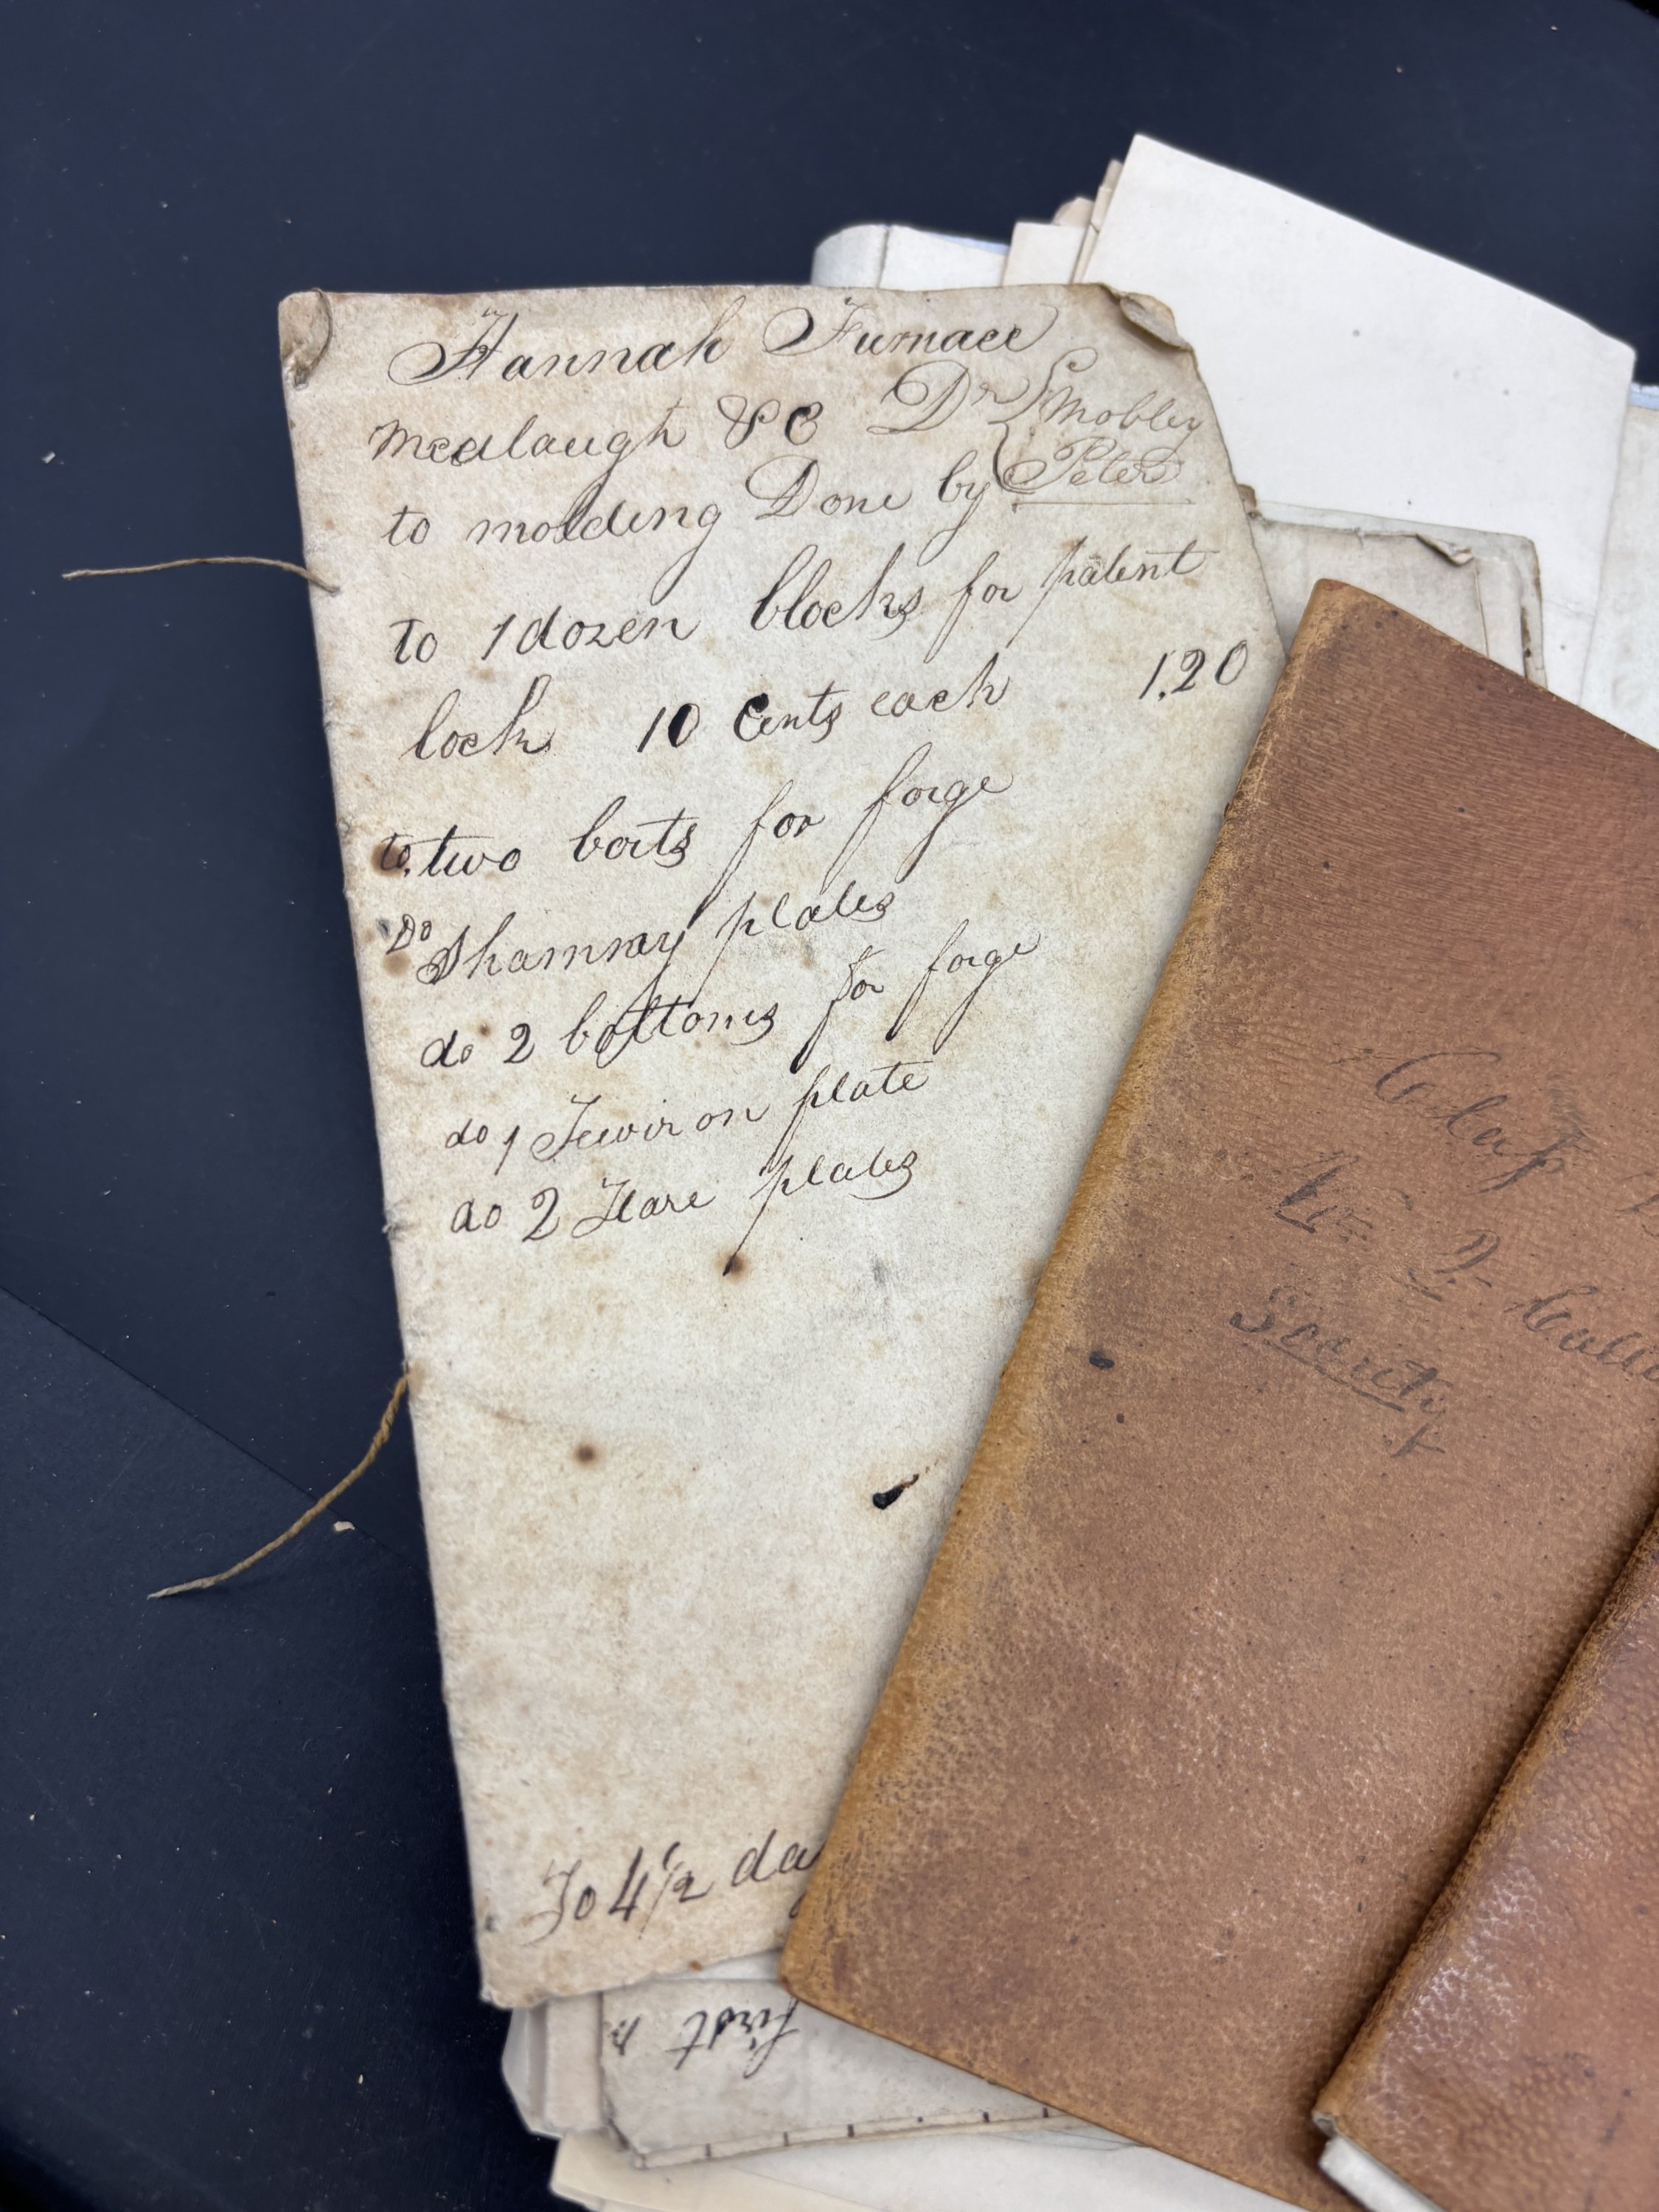 Hannah Furnace
Mcalaugh & C Dr Mobley
to molding Done by Peters
to 1 dozen blocks for patent
lock 10 Cents each 1.20
to two boits for forge
Do Shamray plates
do 2 bottoms for forge
do 1 Tewiron plate
do 2 Hare plates
To 4 1/2 da
first
Clas
No 2
Society